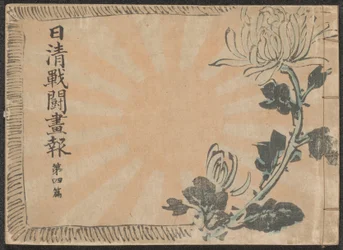 日清戰鬪畫報
第四篇